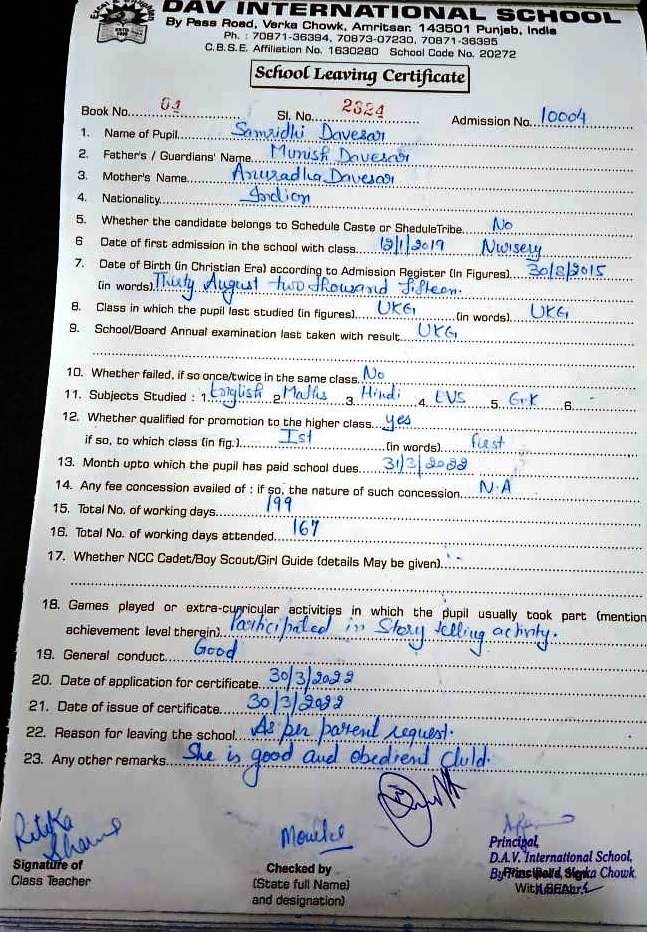 DAV INTERNATIONAL SCHOOL
By Pass Road, Verka Chowk, Amritsar. 143501 Punjab, India
Ph. : 70871-36394, 70873-07230, 70871-36395
C.B.S.E. Affiliation No. 1630280 School Code No. 20272
School Leaving Certificate
Book No. 04 Sl. No. 2324 Admission No. 10004
1. Name of Pupil Samridhi Davesar
2. Father's / Guardians' Name Munish Davesar
3. Mother's Name Anuradha Davesar
4. Nationality Indian
5. Whether the candidate belongs to Schedule Caste or SheduleTribe. No
6 Date of first admission in the school with class 12/1/2019 Nursery
7. Date of Birth (in Christian Era) according to Admission Register (In Figures) 30/8/2015
(in words) Thirty August two thousand fifteen.
8. Class in which the pupil last studied (in figures) UKG (in words) UKG
9. School/Board Annual examination last taken with result UKG
10. Whether failed, if so once/twice in the same class. No
11. Subjects Studied : 1. English 2 Maths 3. Hindi 4. EVS 5. G.K 6.
12. Whether qualified for promotion to the higher class yes
if so, to which class (in fig.) Ist (in words) first
13. Month upto which the pupil has paid school dues 31/3/2022
14. Any fee concession availed of : if so, the nature of such concession N.A
15. Total No. of working days 199
16. Total No. of working days attended 167
17. Whether NCC Cadet/Boy Scout/Girl Guide (details May be given)
18. Games played or extra-curricular activities in which the pupil usually took part (mention
achievement level therein) Participated in Story telling activity.
19. General conduct Good
20. Date of application for certificate 30/3/2022
21. Date of issue of certificate 30/3/2022
22. Reason for leaving the school As per parent request.
23. Any other remarks She is good and obedient child.
Ritika
Sharma
Signature of
Class Teacher
Checked by
(State full Name)
and designation)
Principal,
D.A.V. International School,
By Pass Road, Verka Chowk,
Principal's Sign
With SEAL
Amritsar.